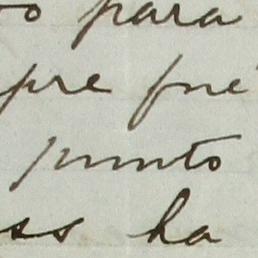 o para
pre fué
punto
ss ha